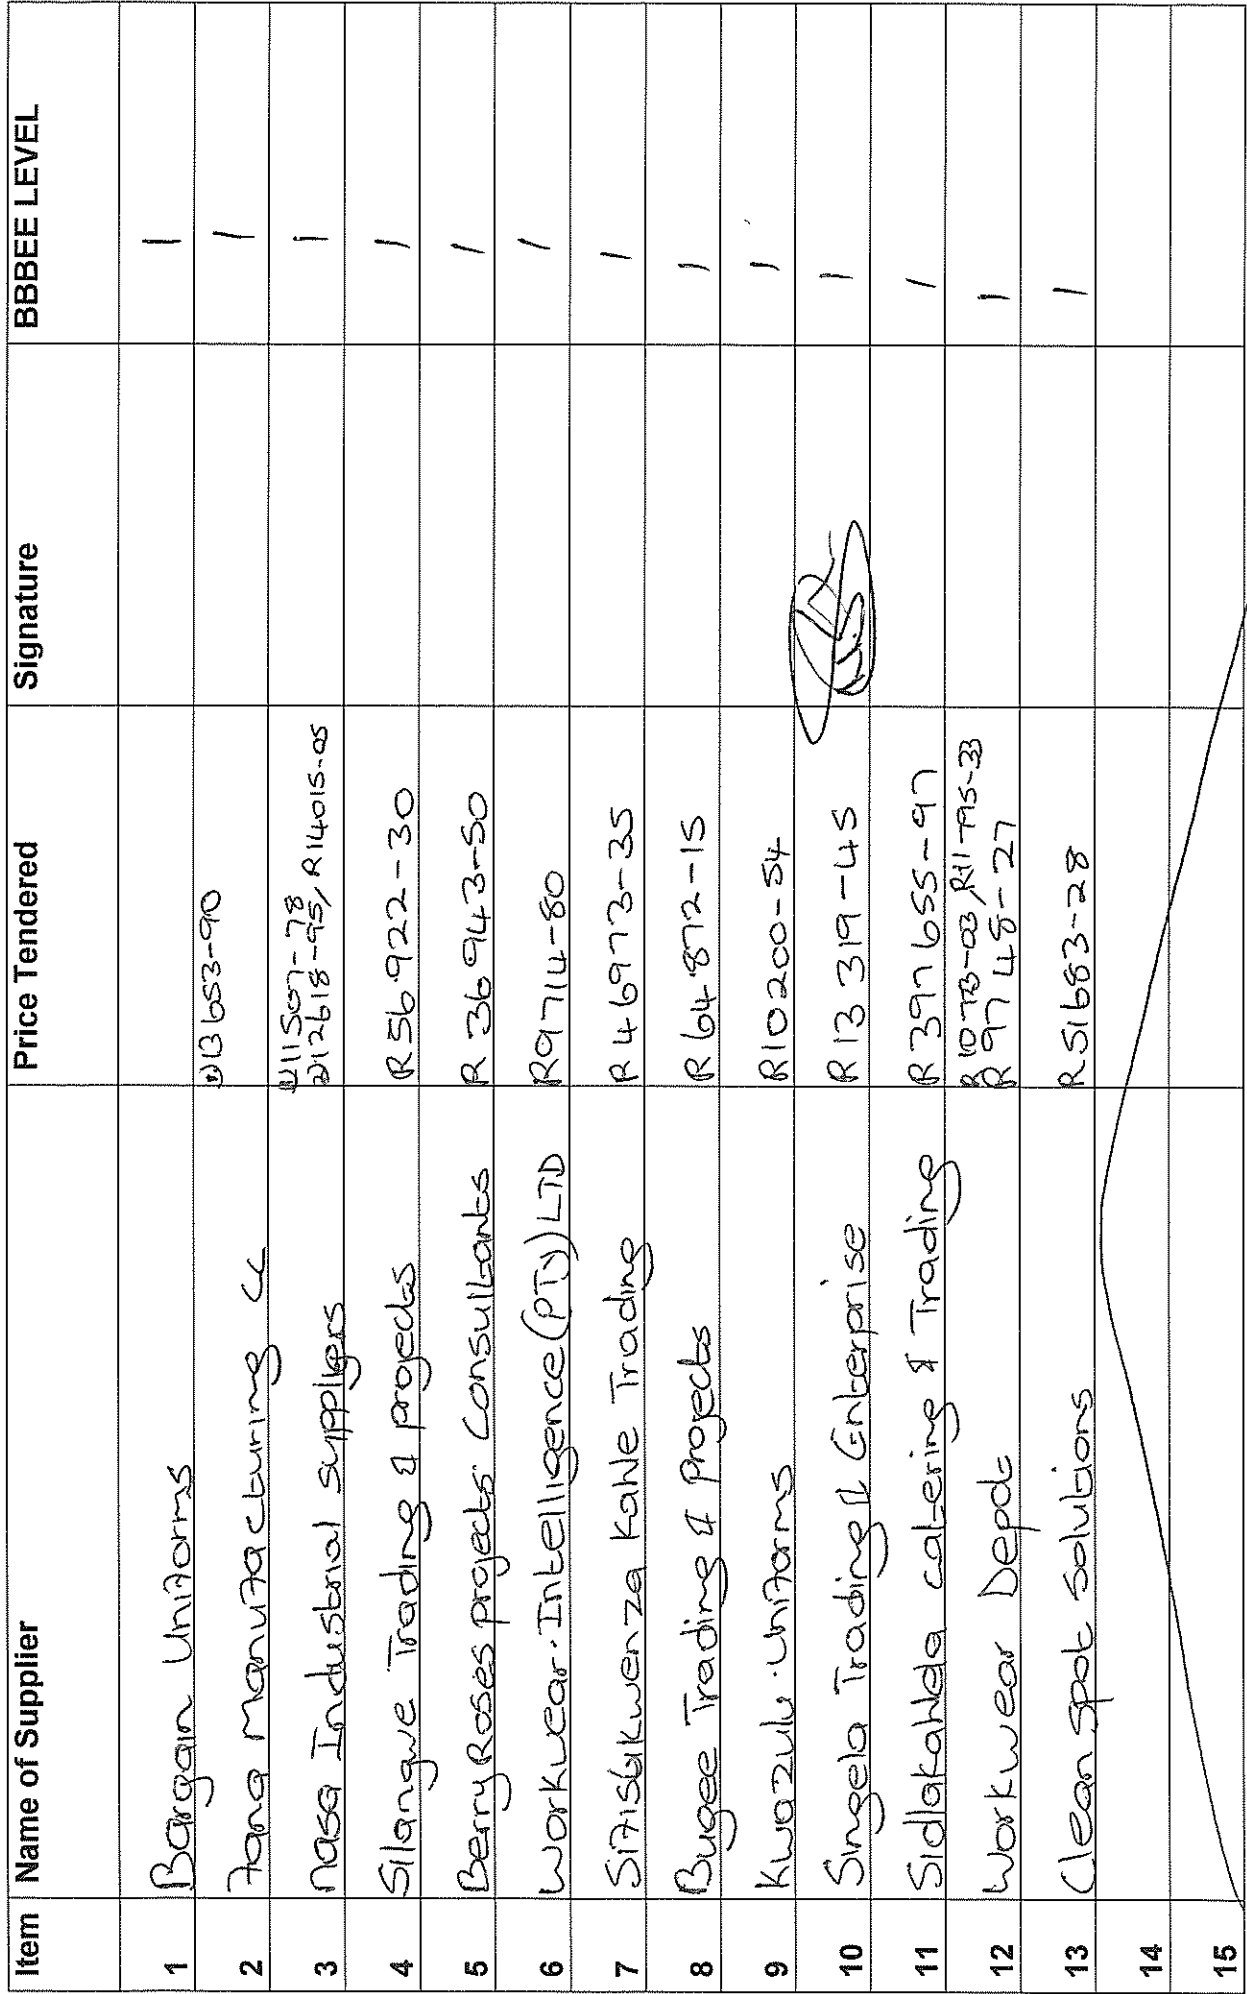 Item Name of Supplier Price Tendered Signature BBBEE LEVEL
1 Bargain Uniforms 1
2 Fana Manufacturing CC 1) 13653-90 1
3 nasa Industrial suppliers 1) 11507-78
2) 12618-95, R14015-05 1
4 Silangwe Trading & projects R56922-30 1
5 Berry Roses projects Consultants R 36943-50 1
6 Workwear Intelligence (PTY) LTD R9714-80 1
7 Sifisbikwenza Kahle Trading R 46973-35 1
8 Bugee Trading & Projects R 64872-15 1
9 Kwazulu Uniforms R10200-54 1
10 Singela Trading & Enterprise R 13 319-45 1
11 Sidlakahlda catering & Trading R 397 655-97 1
12 Workwear Depot R 97 48-27 1
13 Clean spot solutions R51683-28 1
14
15